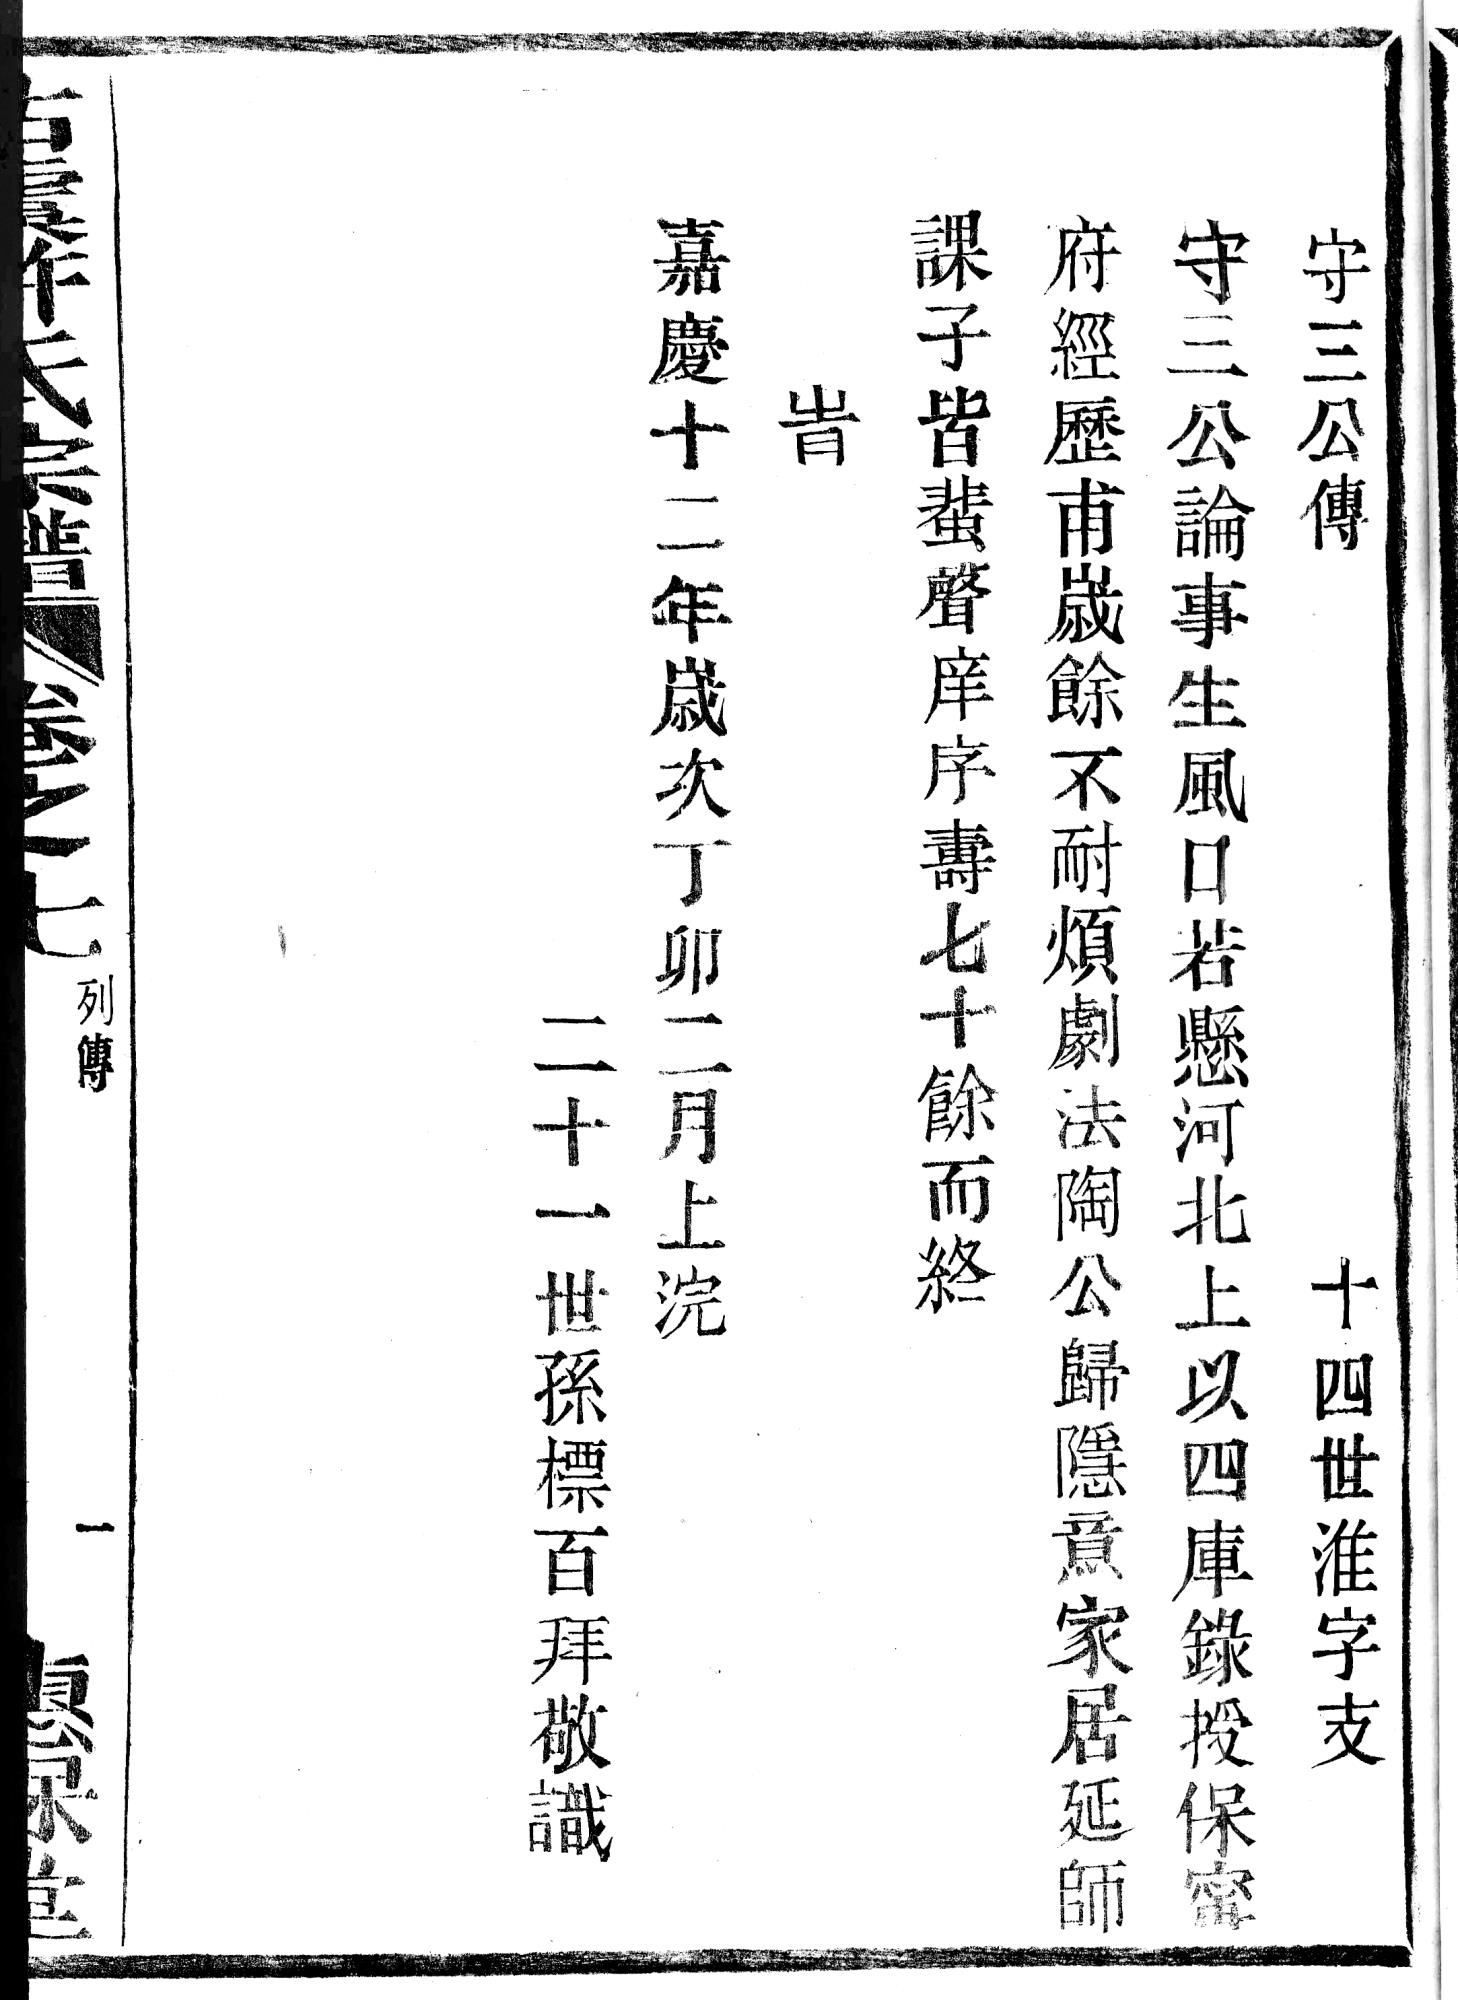 守三公傳 十四世淮字支
守三公論事生風口若懸河北上以四庫錄授保甯
府經歷甫歲餘不耐煩劇法陶公歸隱意家居延師
課子皆蜚聲庠序壽七十餘而終
旹
嘉慶十二年歲次丁卯二月上浣
二十一世孫標百拜敬識
氏宗譜 卷之七 列傳 一 堂